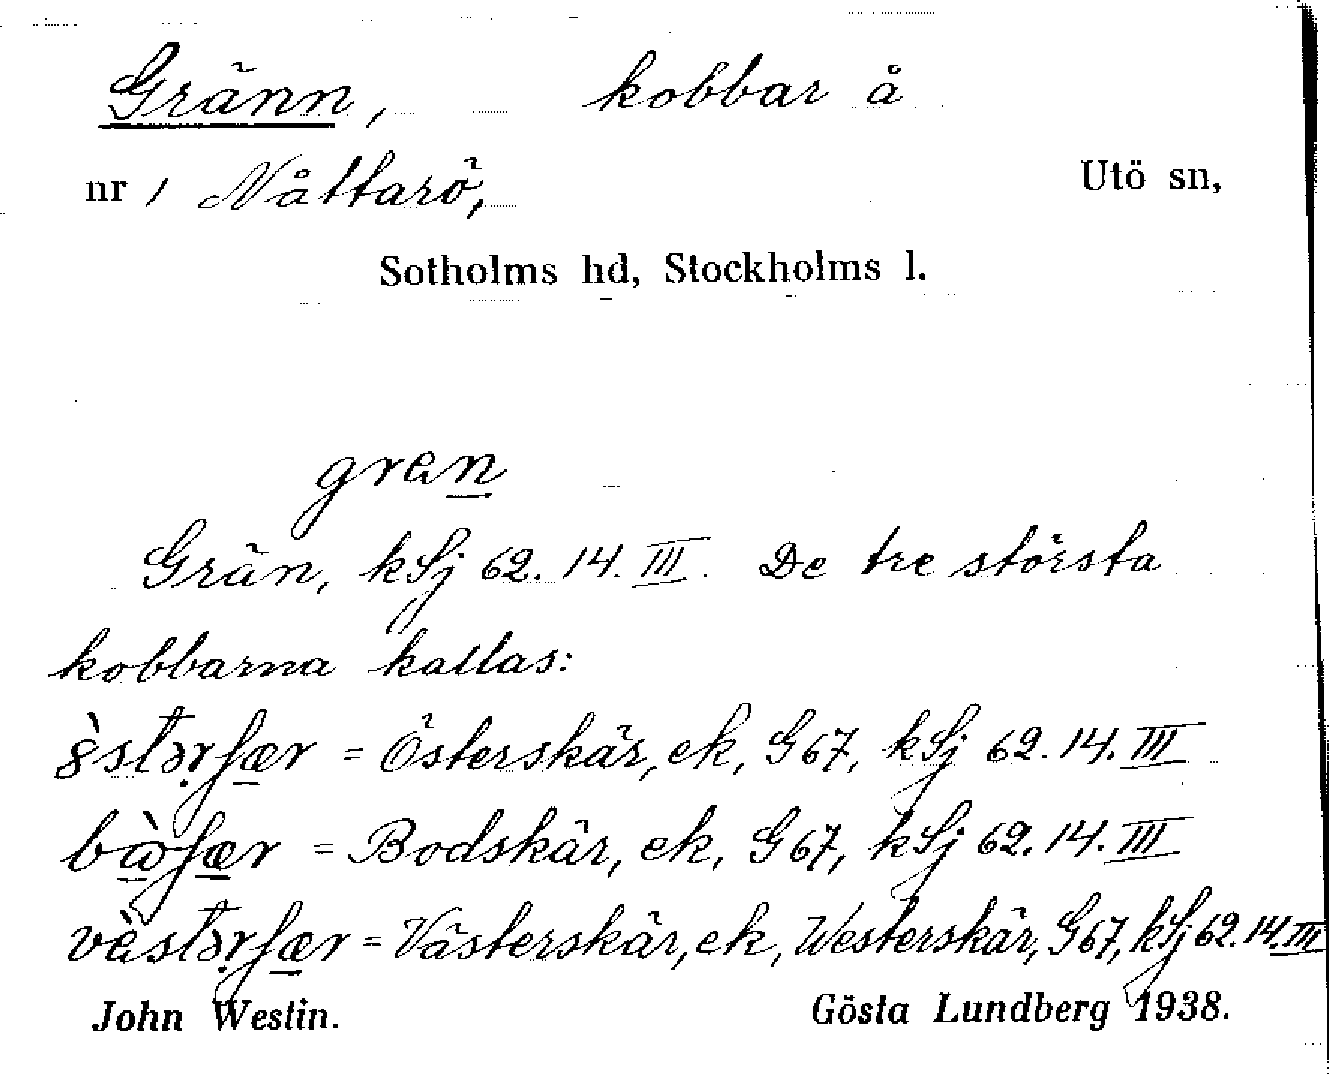 Gränn, kobbar å
nr 1 Nåttarö, Utö sn,
Sotholms hd, Stockholms l.
gran
Grän, kSj 62.14.III. De tre största
kobbarna kallas:
= Österskär, ek, G67, kSj 62.14.III
= Bodskär, ek, G67, kSj 62.14.III
= Västerskär, ek, Westerskär, G67, kSj 62.14.III
John Westin. Gösta Lundberg 1938.